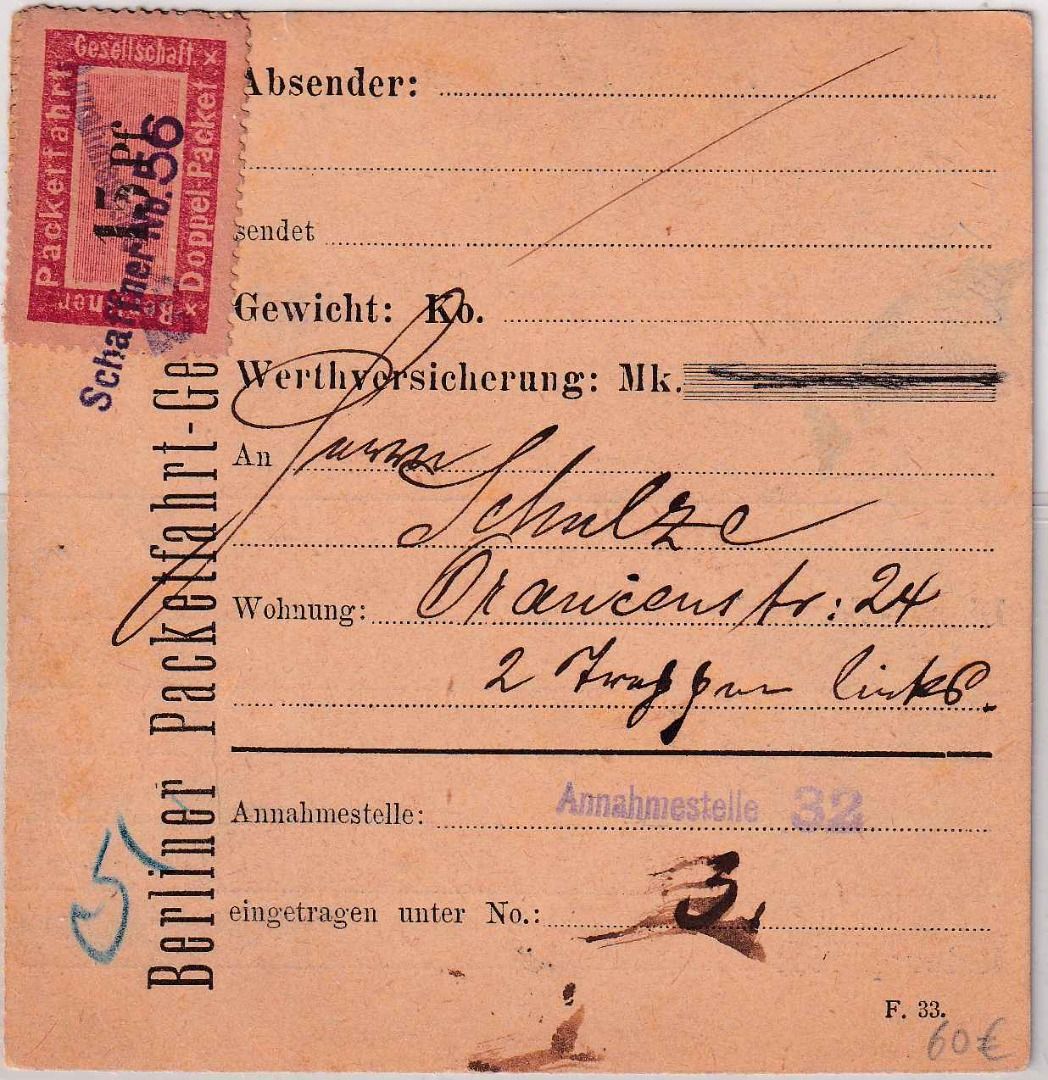 Gesellschaft. ×
Packetfahrt
15 Pf
Doppel-Packet
× Berliner
Schaffner No. 56
Berliner Packetfahrt-Ge
Absender:
sendet
Gewicht: Ko.
Werthversicherung: Mk.
An Herrn
Schulze
Wohnung: Oranienstr: 24
2 Treppen links.
Annahmestelle: Annahmestelle 32
eingetragen unter No.: 3,
5
F. 33.
60€